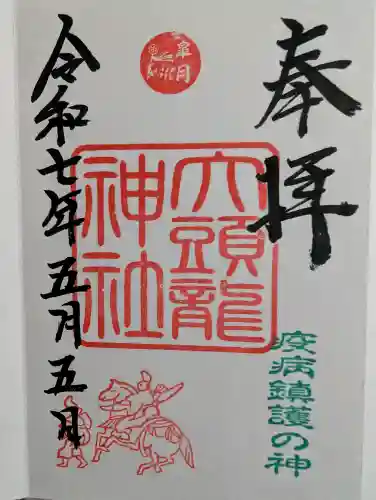 奉拝
皐月
六頭龍
神社
疫病鎮護の神
令和七年五月五日